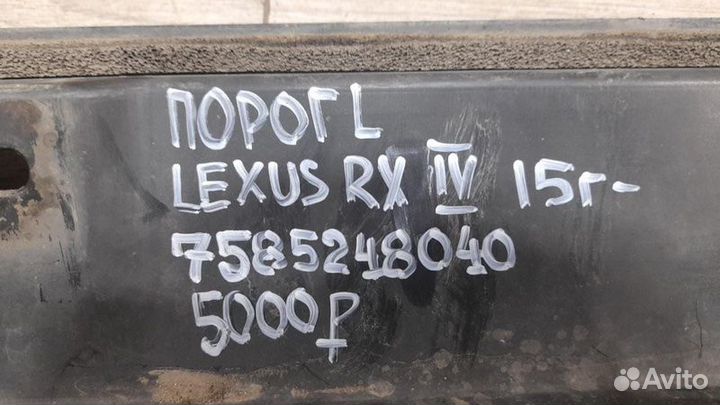 ПОРОГ L
LEXUS RX IV 15г-
7585248040
5000₽
Avito